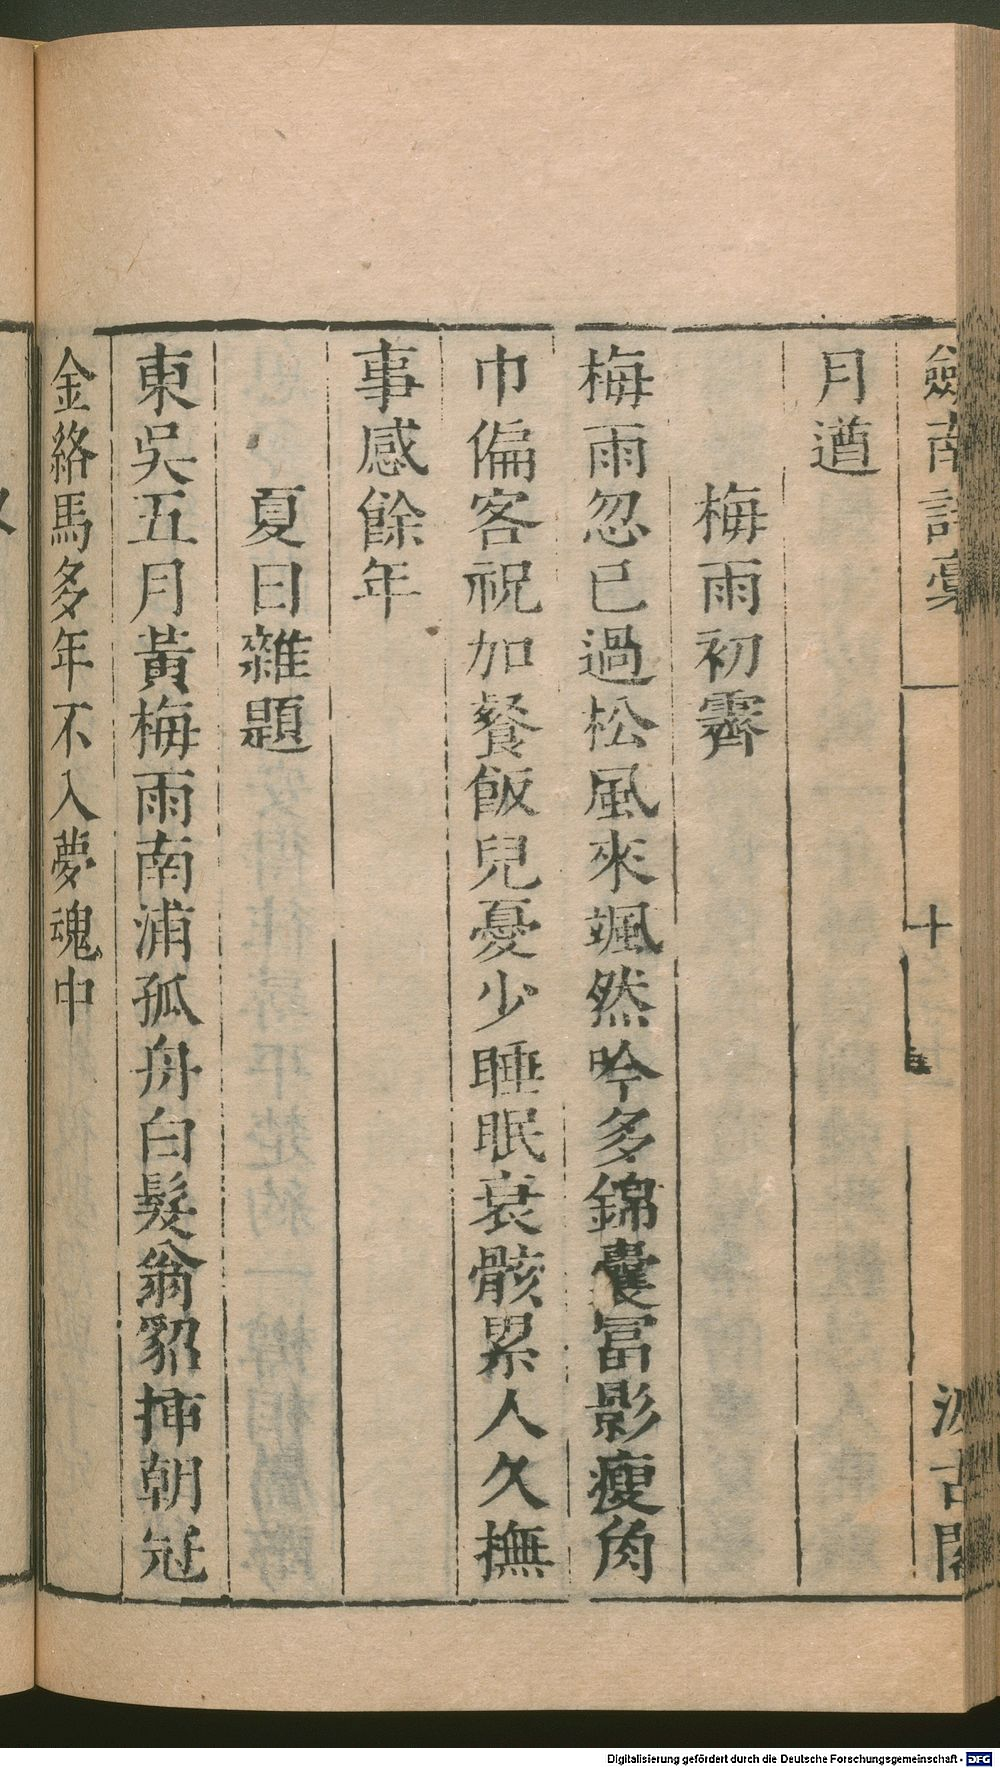 劍南詩稾
十
汲古閣
月遒
梅雨初霽
梅雨忽已過松風來颯然吟多錦囊冨影瘦角
巾偏客祝加餐飯兒憂少睡眠衰骸累人久撫
事感餘年
夏日雜題
東吳五月黃梅雨南浦孤舟白髮翁貂揷朝冠
金絡馬多年不入夢魂中
Digitalisierung gefördert durch die Deutsche Forschungsgemeinschaft - DFG